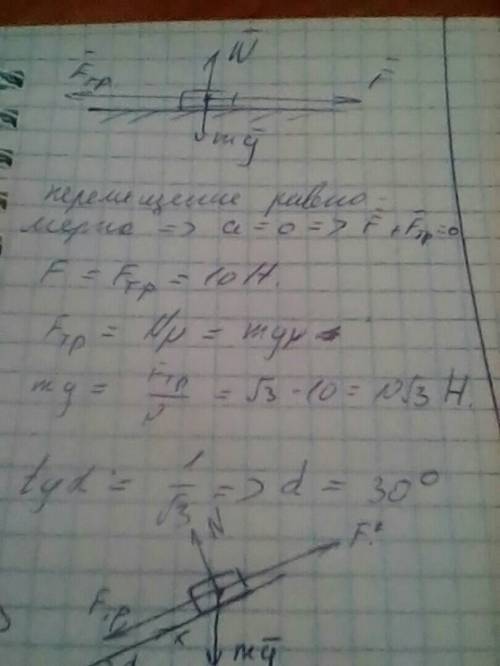 N̄
F̄тр F̄
mḡ
перемещение равно-
мерно => a = 0 => F̄ + F̄тр = 0
F = Fтр = 10 Н.
Fтр = Nμ = mgμ
mg = Fтр/μ = √3 · 10 = 10√3 Н.
tgα = 1/√3 => α = 30°
N
Fтр x
mḡ